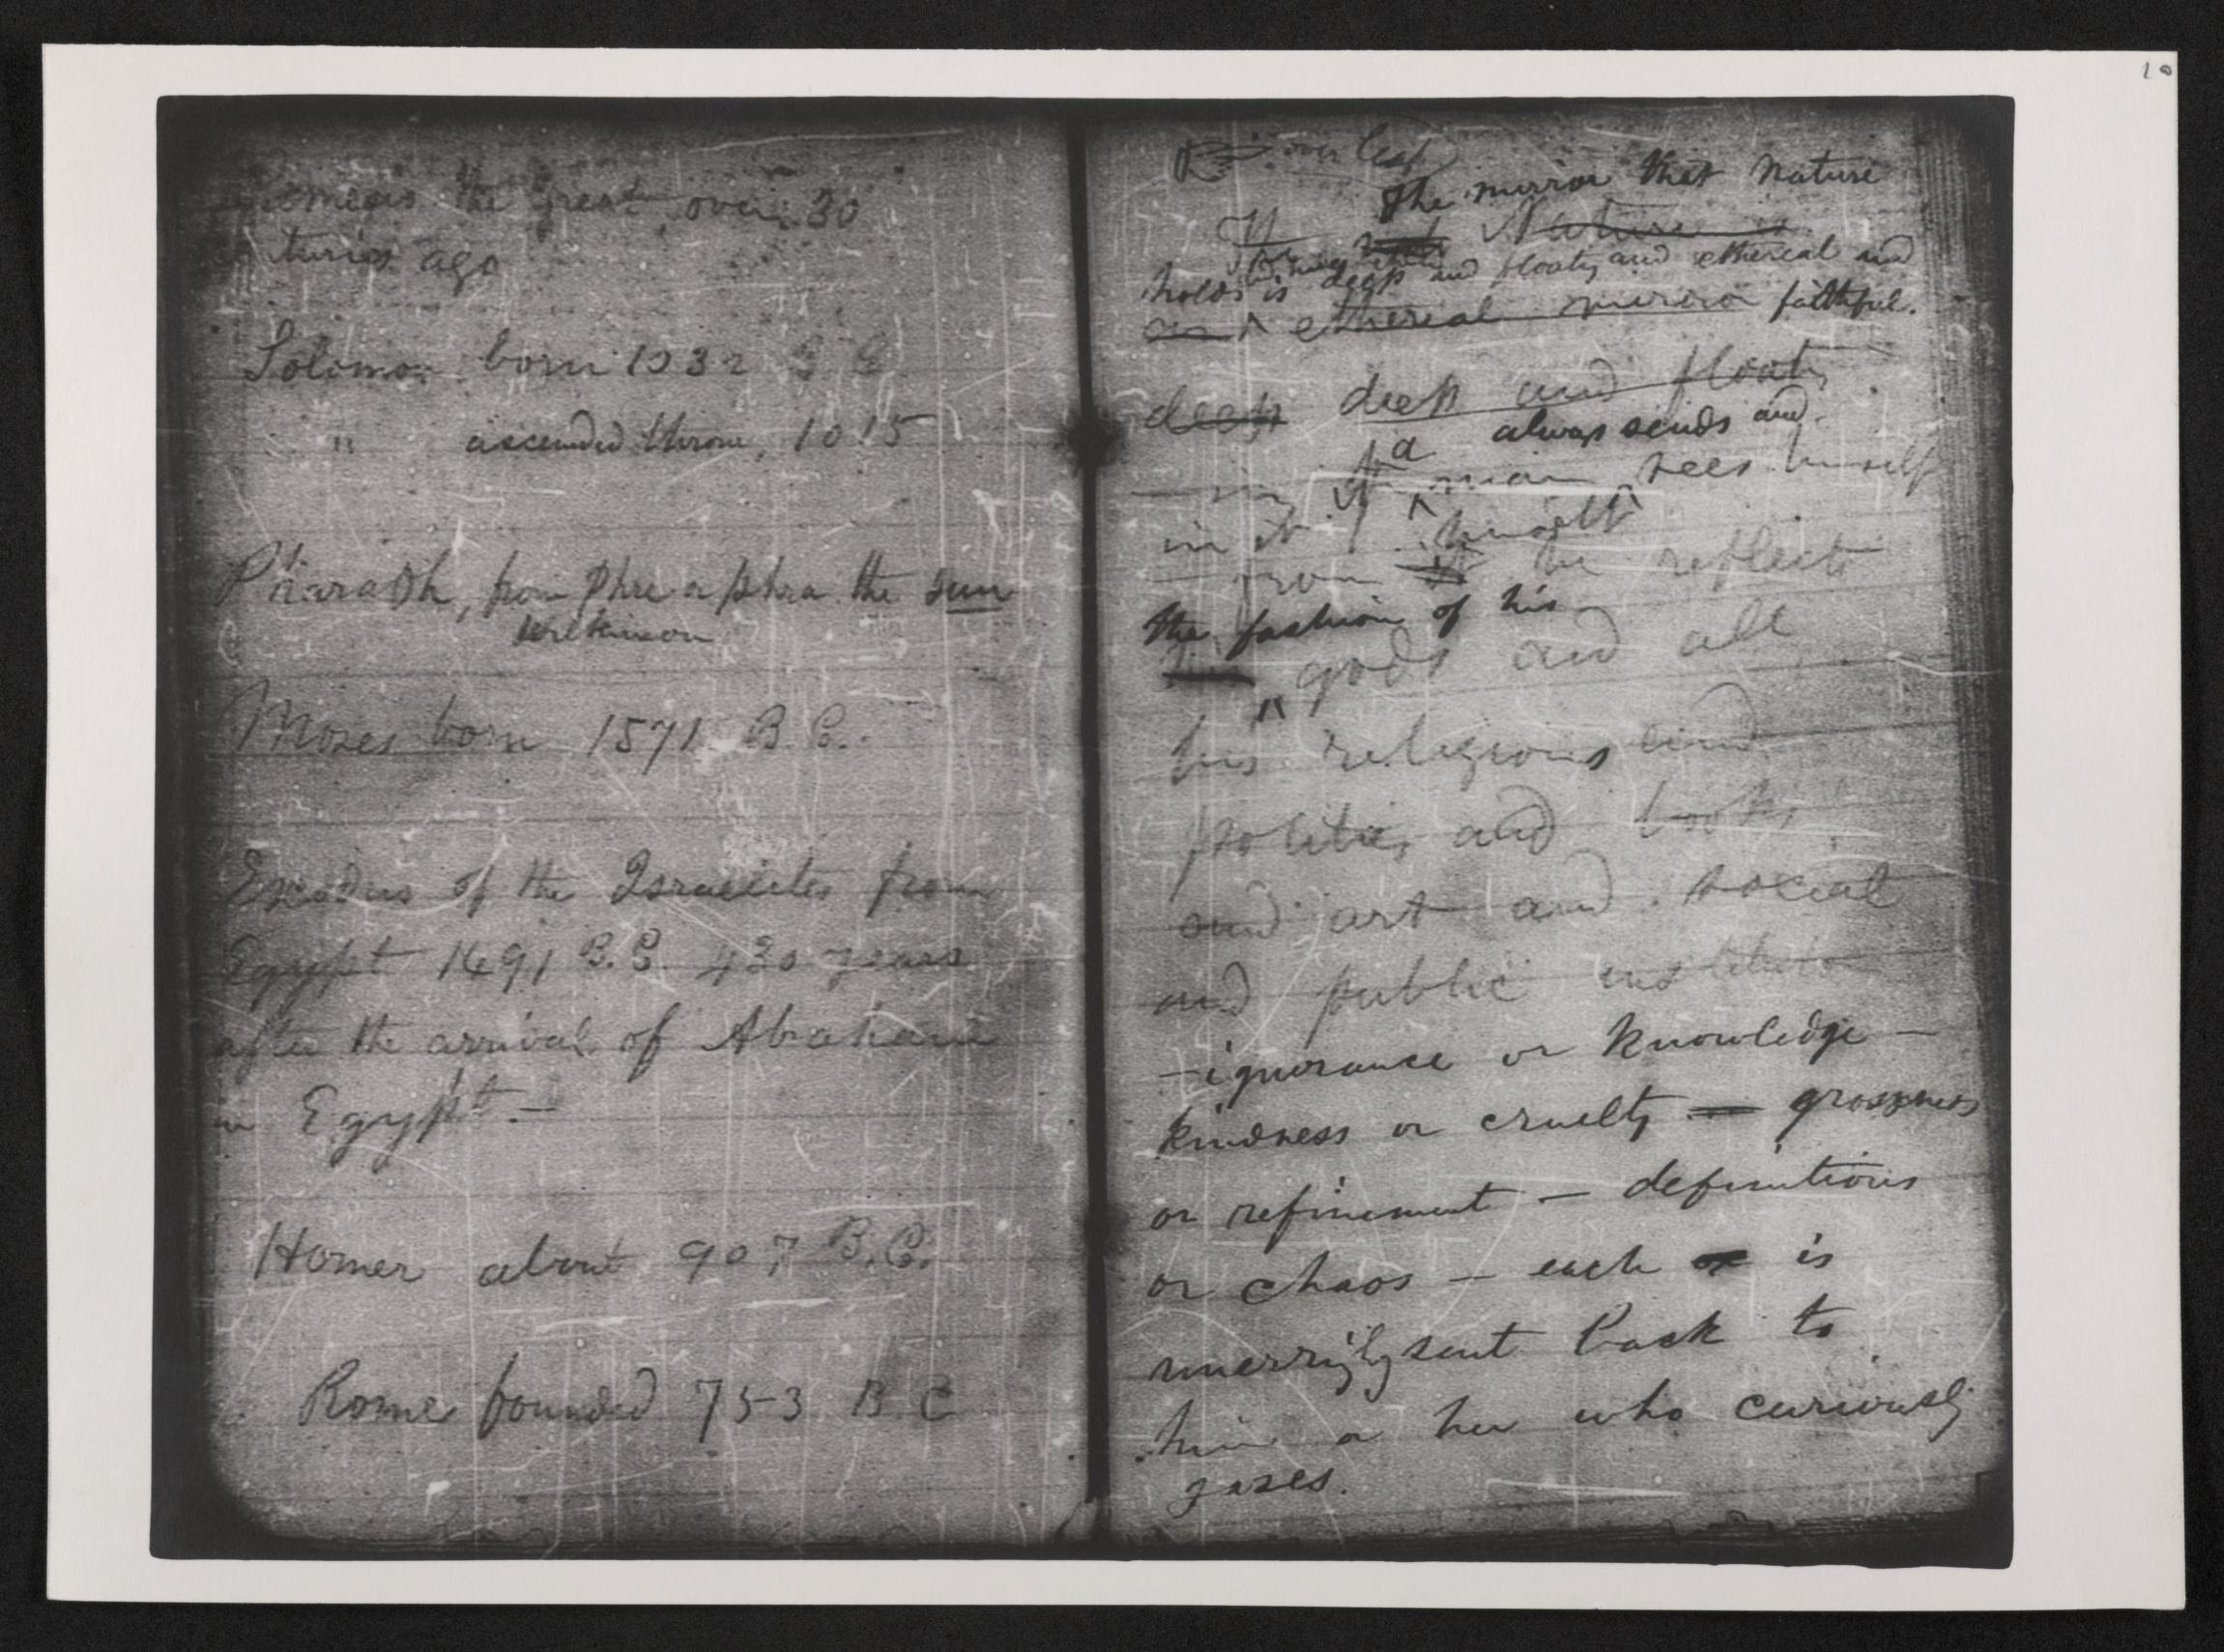 the great over 30
turies ago
Solomon born 1032 B C
" ascended throne, 1015
Pharaoh, from Phre or phra the sun
Wilkinson
Moses born 1571 B.C.
Exodus of the Israelites from
Egypt 1491 B.C. 430 years
after the arrival of Abraham
in Egypt. –
Homer about 907 B.C.
Rome founded 753 B C
10
over leaf
The mirror that Nature
Nature is
holds is deep and floaty and ethereal and
an ethereal mirror faithful.
deep deep and floaty
a always sends and
in it man sees himself
in it himself
from it he reflects
the fashion of his
gods and all
his religions and
politics and books
and art and social
and public institutions
– ignorance or knowledge –
kindness or cruelty – grossness
or refinement – definitions
or chaos – each is
unerringly sent back to
him or her who curiously
gazes.